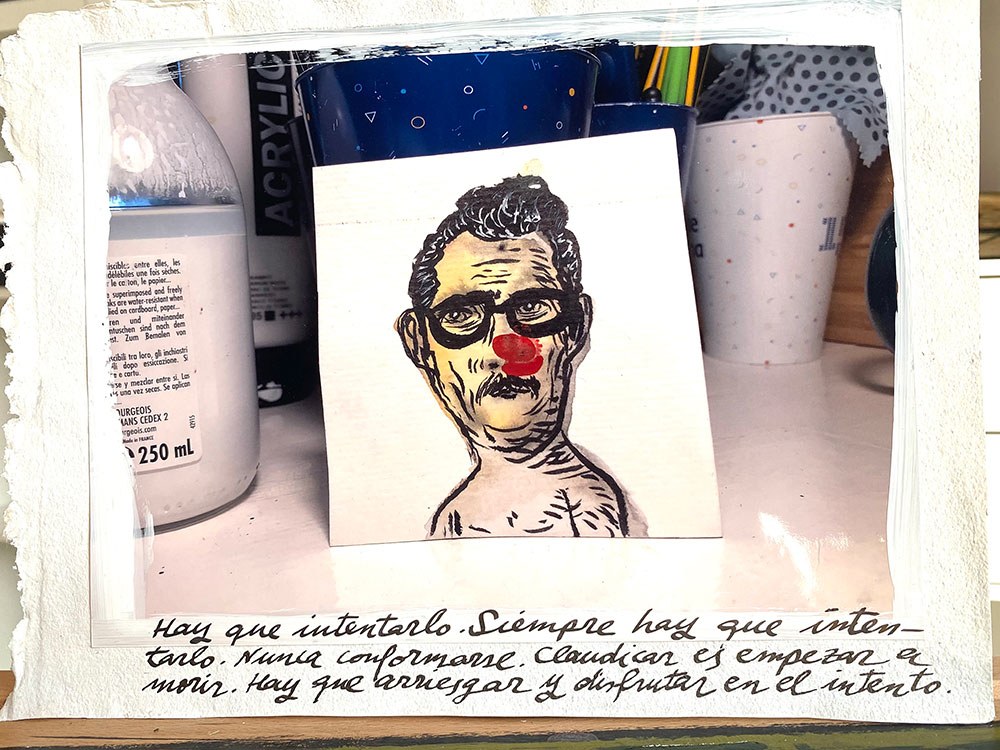 ACRYLIC
iscibles entre elles, les
délébiles une fois sèches.
r le carton, le papier...
e superimposed and freely
nks are water-resistant when
lied on cardboard, paper...
ren und miteinander
ntuschen sind nach dem
st. Zum Bemalen von
scibili tra loro, gli inchiostri
li dopo essiccazione. Si
e e cartu.
rse y mezclar entre sí. Las
s una vez secas. Se aplican
OURGEOIS
MANS CEDEX 2
urgeois.com
Made in FRANCE
250 mL
42915
Hay que intentarlo. Siempre hay que inten-
tarlo. Nunca conformarse. Claudicar es empezar a
morir. Hay que arriesgar y disfrutar en el intento.